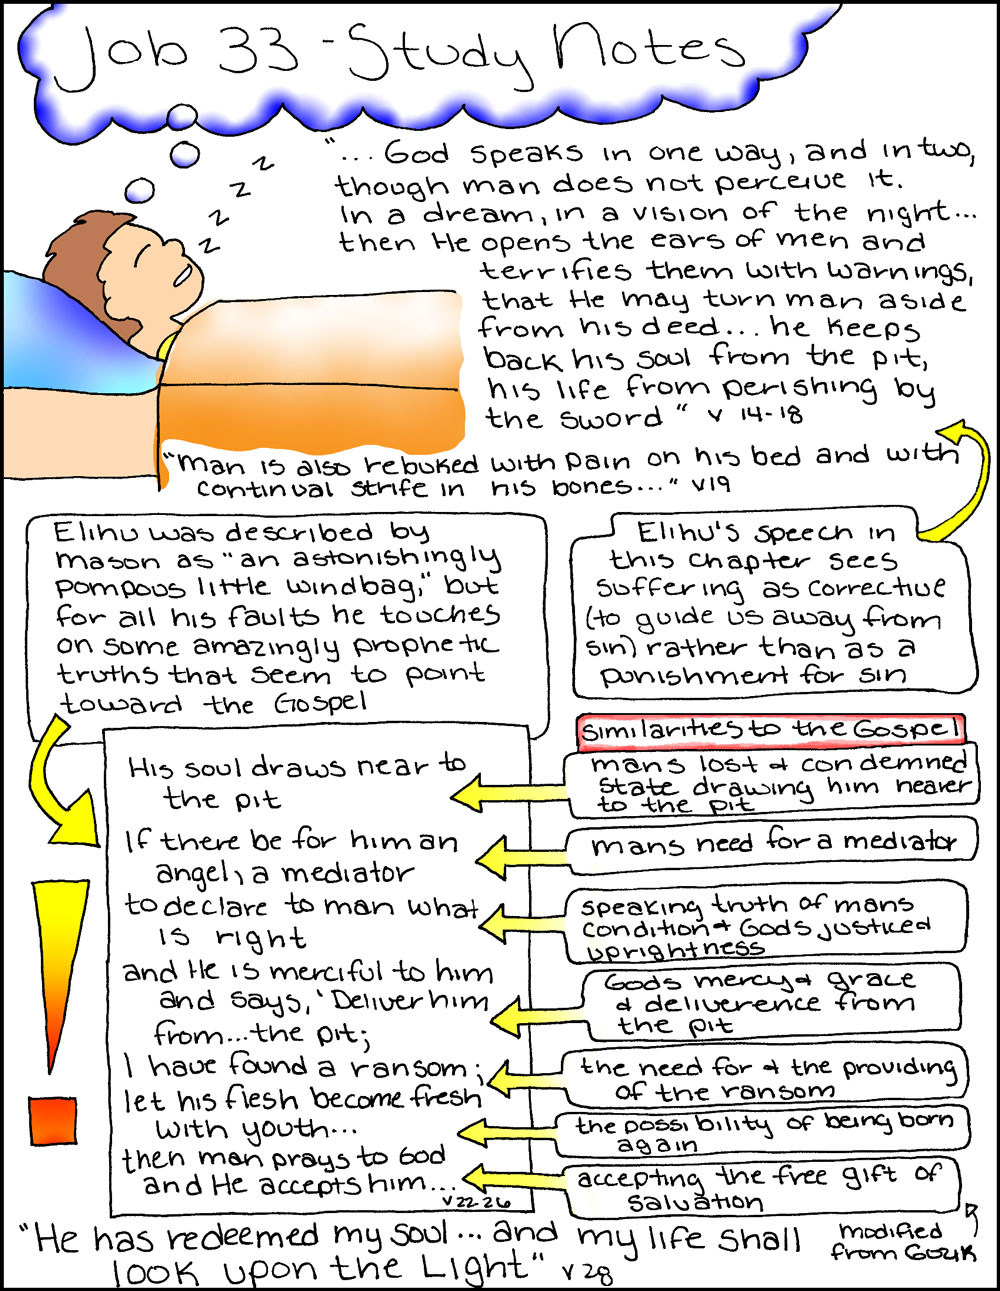 Job 33 - Study Notes
z
z
z
z
"... God speaks in one way, and in two,
though man does not perceive it.
In a dream, in a vision of the night...
then He opens the ears of men and
terrifies them with warnings,
that He may turn man aside
from his deed... he keeps
back his soul from the pit,
his life from perishing by
the sword" v 14-18
"Man is also rebuked with pain on his bed and with
continual strife in his bones..." v19
Elihu was described by
mason as "an astonishingly
pompous little windbag," but
for all his faults he touches
on some amazingly prophetic
truths that seem to point
toward the Gospel
Elihu's speech in
this chapter sees
suffering as corrective
(to guide us away from
sin) rather than as a
punishment for sin
His soul draws near to
the pit
If there be for him an
angel, a mediator
to declare to man what
is right
and He is merciful to him
and says, 'Deliver him
from...the pit;
I have found a ransom;
let his flesh become fresh
with youth...
then man prays to God
and He accepts him...
v22-26
similarities to the Gospel
mans lost & condemned
state drawing him nearer
to the pit
mans need for a mediator
speaking truth of mans
condition & Gods justice &
uprightness
Gods mercy & grace
& deliverence from
the pit
the need for & the providing
of the ransom
the possibility of being born
again
accepting the free gift of
salvation
"He has redeemed my soul... and my life shall
look upon the Light" v 28
modified
from